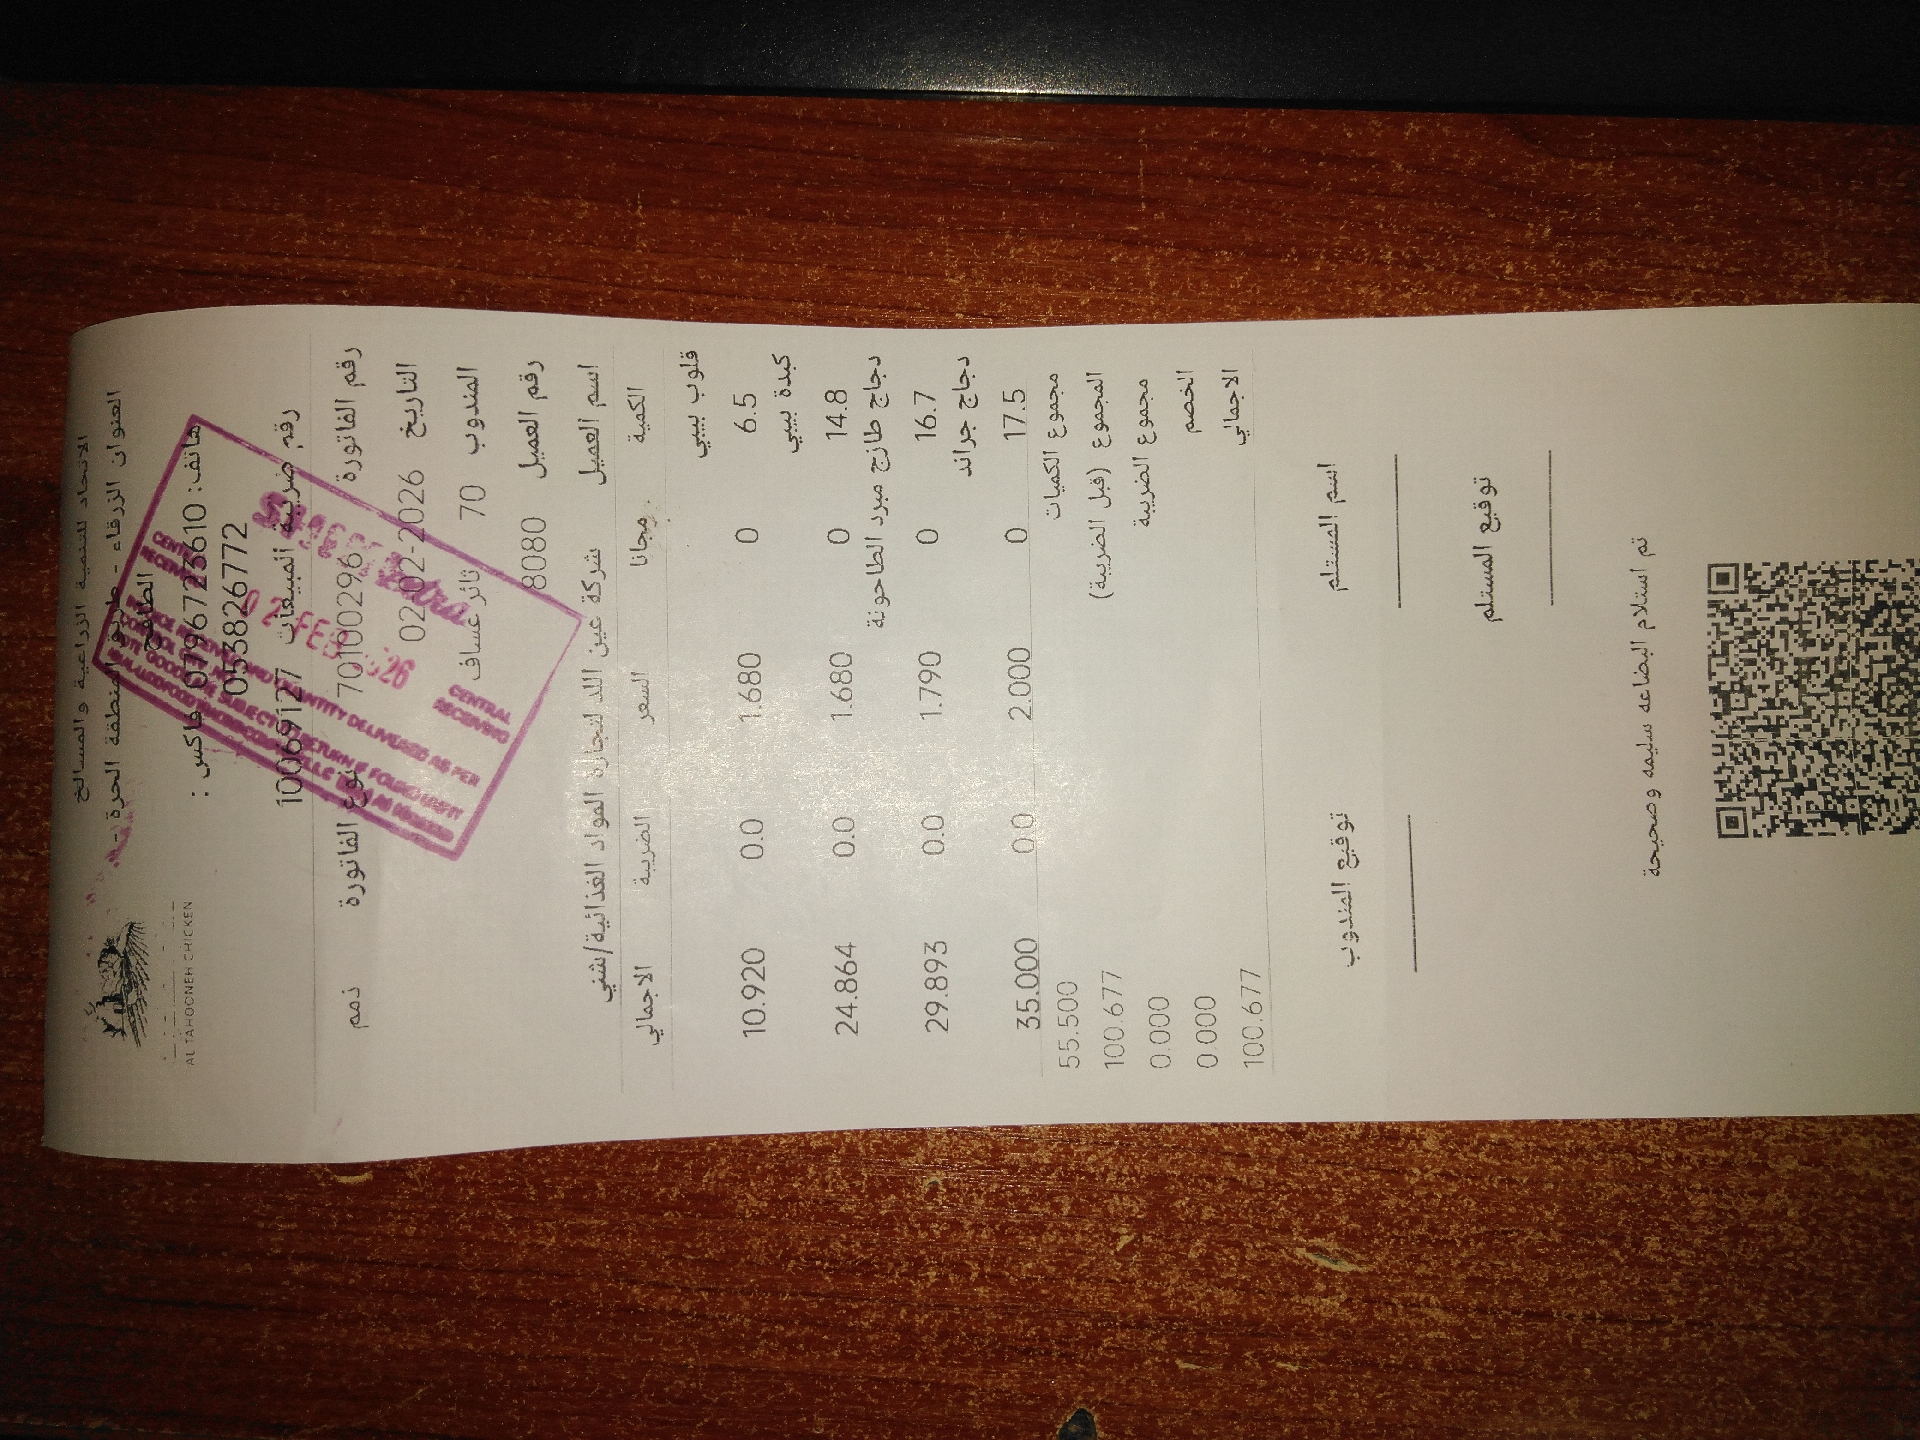 الاتحاد للتنمية الزراعية والمسالخ
العنوان الزرقاء - طريق المنطقة الحرة -
هاتف: 0796723610 فاكس :
053826772
رقم ضريبة المبيعات 10069127
AL TAHOONEH CHICKEN
رقم الفاتورة 7010029 نوع الفاتورة ذمم
التاريخ 02-02-2026
المندوب 70 ثائر عساف
رقم العميل 8080
اسم العميل شركة عين اللد لتجارة المواد الغذائية/شني
الكمية مجانا السعر الضريبة الاجمالي
قلوب بيبي
6.5 0 1.680 0.0 10.920
كبدة بيبي
14.8 0 1.680 0.0 24.864
دجاج طازج مبرد الطاحونة
16.7 0 1.790 0.0 29.893
دجاج جراند
17.5 0 2.000 0.0 35.000
مجموع الكميات 55.500
المجموع (قبل الضريبة) 100.677
مجموع الضريبة 0.000
الخصم 0.000
الاجمالي 100.677
اسم المستلم توقيع المندوب
توقيع المستلم
تم استلام البضاعه سليمه وصحيحة
CENTRAL
RECEIVING
02 FEB 2026
QUANTITY DELIVERED AS PER
GOODS SUBJECT RETURN IF FOUND